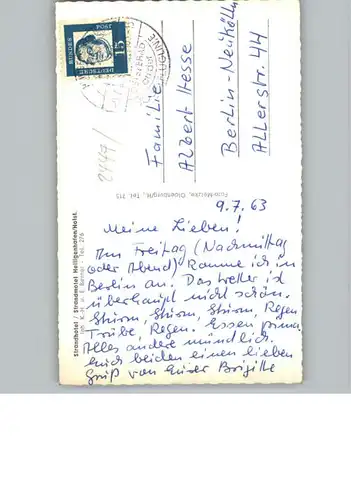 15
DEUTSCHE
Familie
Albert Hesse
Berlin-Neukölln
Allerstr. 44
Strandhotel - Strandhotel Heiligenhafen/Holst.
Tel. 276
Foto-Muczke, Oldenburg/H., Tel. 313
9.7.63
Meine Lieben!
Am Freitag (Nachmittag
oder Abend) komme ich in
Berlin an. Das Wetter ist
überhaupt nicht schön.
Sturm, Sturm, Sturm, Regen
Trübe, Regen. Essen prima.
Alles andere mündlich.
Euch beiden einen lieben
Gruß von Eurer Brigitte